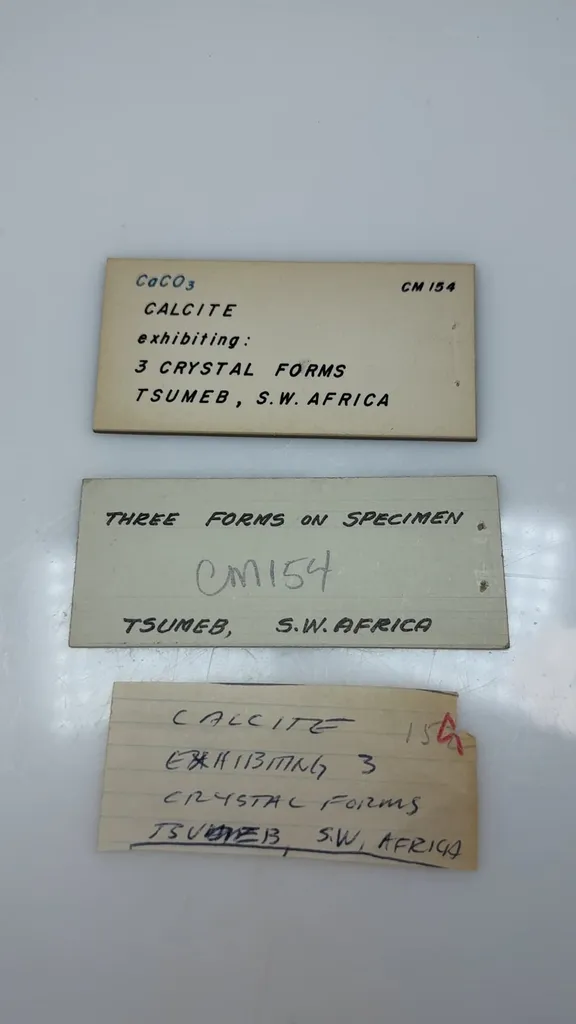 CaCO₃ CM 154
CALCITE
exhibiting:
3 CRYSTAL FORMS
TSUMEB, S.W. AFRICA
THREE FORMS ON SPECIMEN
CM154
TSUMEB, S.W. AFRICA
CALCITE
EXHIBITING 3
CRYSTAL FORMS
TSUMEB, S.W. AFRICA